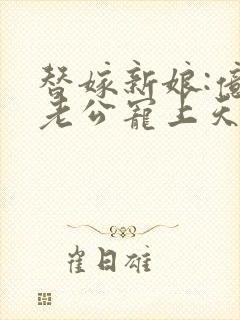 替嫁新娘:
老公寵上天
崔日雄